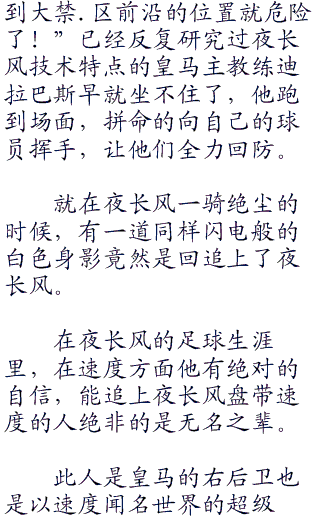 到大禁.区前沿的位置就危险
了！”已经反复研究过夜长
风技术特点的皇马主教练迪
拉巴斯早就坐不住了，他跑
到场面，拼命的向自己的球
员挥手，让他们全力回防。
就在夜长风一骑绝尘的
时候，有一道同样闪电般的
白色身影竟然是回追上了夜
长风。
在夜长风的足球生涯
里，在速度方面他有绝对的
自信，能追上夜长风盘带速
度的人绝非的是无名之辈。
此人是皇马的右后卫也
是以速度闻名世界的超级